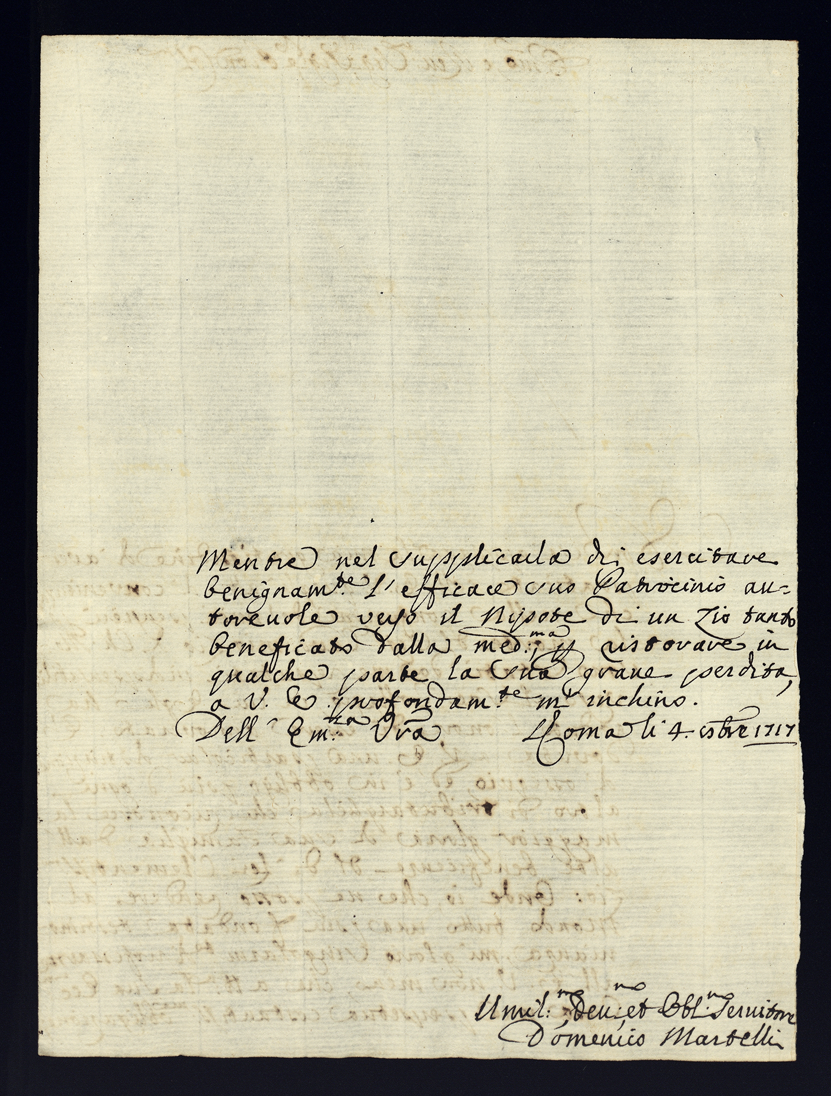 Mentre nel supplicarla di esercitare
benignam.te l'efficace suo Patrocinio au=
toreuole verso il Nipote di un Zio tanto
beneficato dalla med.ma, p ristorare in
qualche parte la sua graue perdita,
a V. E. profondam.te m'inchino.
Dell' Em.za Vra Roma li 4. 1717
Umil.mo Deu.mo et Obl.mo Seruitore
Domenico Martelli